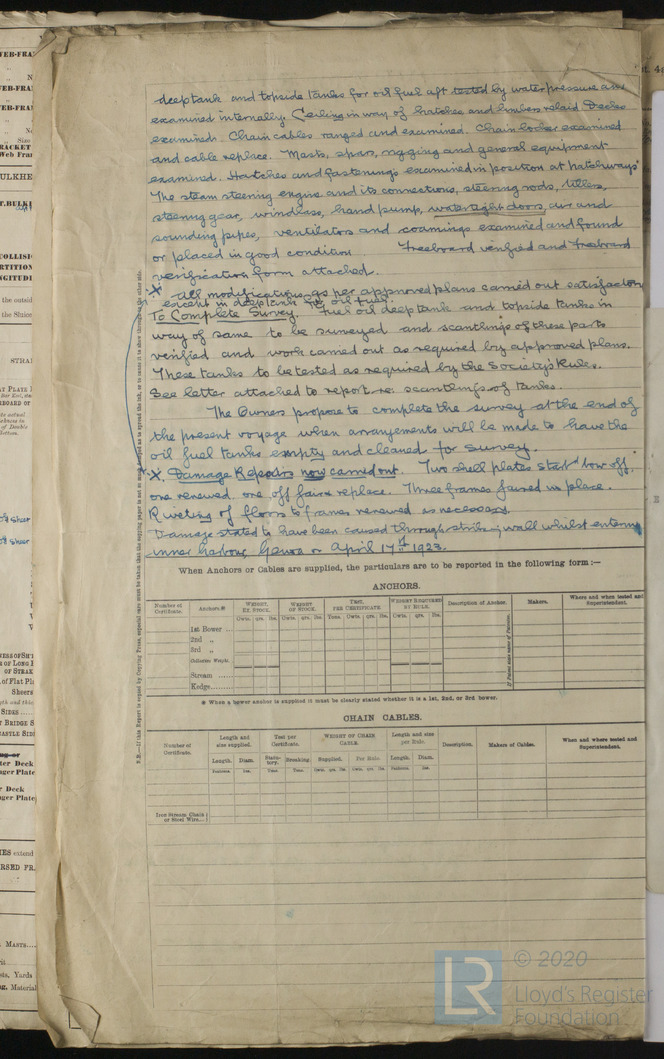 deep tank and topside tanks for oil fuel aft tested by water pressure and
examined internally. Ceiling in way of hatches and limbers relaid Decks
examined. Chain cables ranged and examined. Chain locker examined
and cable replace. Masts, spars, rigging and general equipment
examined. Hatches and fastenings examined in position at hatchways
The steam steering engine and its connections, steering rods, tillers,
steering gear, windlass, hand pump, watertight doors, air and
sounding pipes, ventilators and coamings examined and found
or placed in good condition. Freeboard verified and Freeboard
verification form attached.
X All modifications as per approved plans carried out satisfactory
except in deep tank for oil fuel.
To Complete Survey. Fuel oil deep tank and topside tanks in
way of same to be surveyed and scantlings of these parts
verified and work carried out as required by approved plans.
These tanks to be tested as required by the Society's Rules.
See letter attached to report re scantlings of tanks.
The Owners propose to complete the survey at the end of
the present voyage when arrangements will be made to have the
oil fuel tanks empty and cleaned for survey.
X Damage Repairs now carried out. Two shell plates starbd bow off,
one renewed, one off fair & replace. Three frames faired in place.
Riveting of floors to frames renewed as necessary.
Damage stated to have been caused through striking wall whilst entering
inner harbour Genoa on April 17th 1923.
When Anchors or Cables are supplied, the particulars are to be reported in the following form :—
ANCHORS.
Number of Certificate. Anchors.* WEIGHT, EX STOCK. WEIGHT OF STOCK. TEST, PER CERTIFICATE WEIGHT REQUIRED BY RULE. Description of Anchor. Makers. Where and when tested and Superintendent.
Cwts. qrs. lbs. Cwts. qrs. lbs. Tons. Cwts. qrs. lbs. Cwts. qrs. lbs.
1st Bower ...
2nd „
3rd „
Collective Weight.
Stream ....
Kedge......
If Patent state name of Patentee.
* When a bower anchor is supplied it must be clearly stated whether it is a 1st, 2nd, or 3rd bower.
CHAIN CABLES.
Number of Certificate. Length and size supplied. Test per Certificate. WEIGHT OF CHAIN CABLE. Length and size per Rule. Description. Makers of Cables. When and where tested and Superintendent.
Length. Diam. Statutory. Breaking. Supplied. Per Rule. Length. Diam.
Fathoms. Ins. Tons. Tons. Cwts. qrs. lbs. Cwts. qrs. lbs. Fathoms. Ins.
Iron Stream Chain or Steel Wire...
LR
© 2020
Lloyd's Register
Foundation